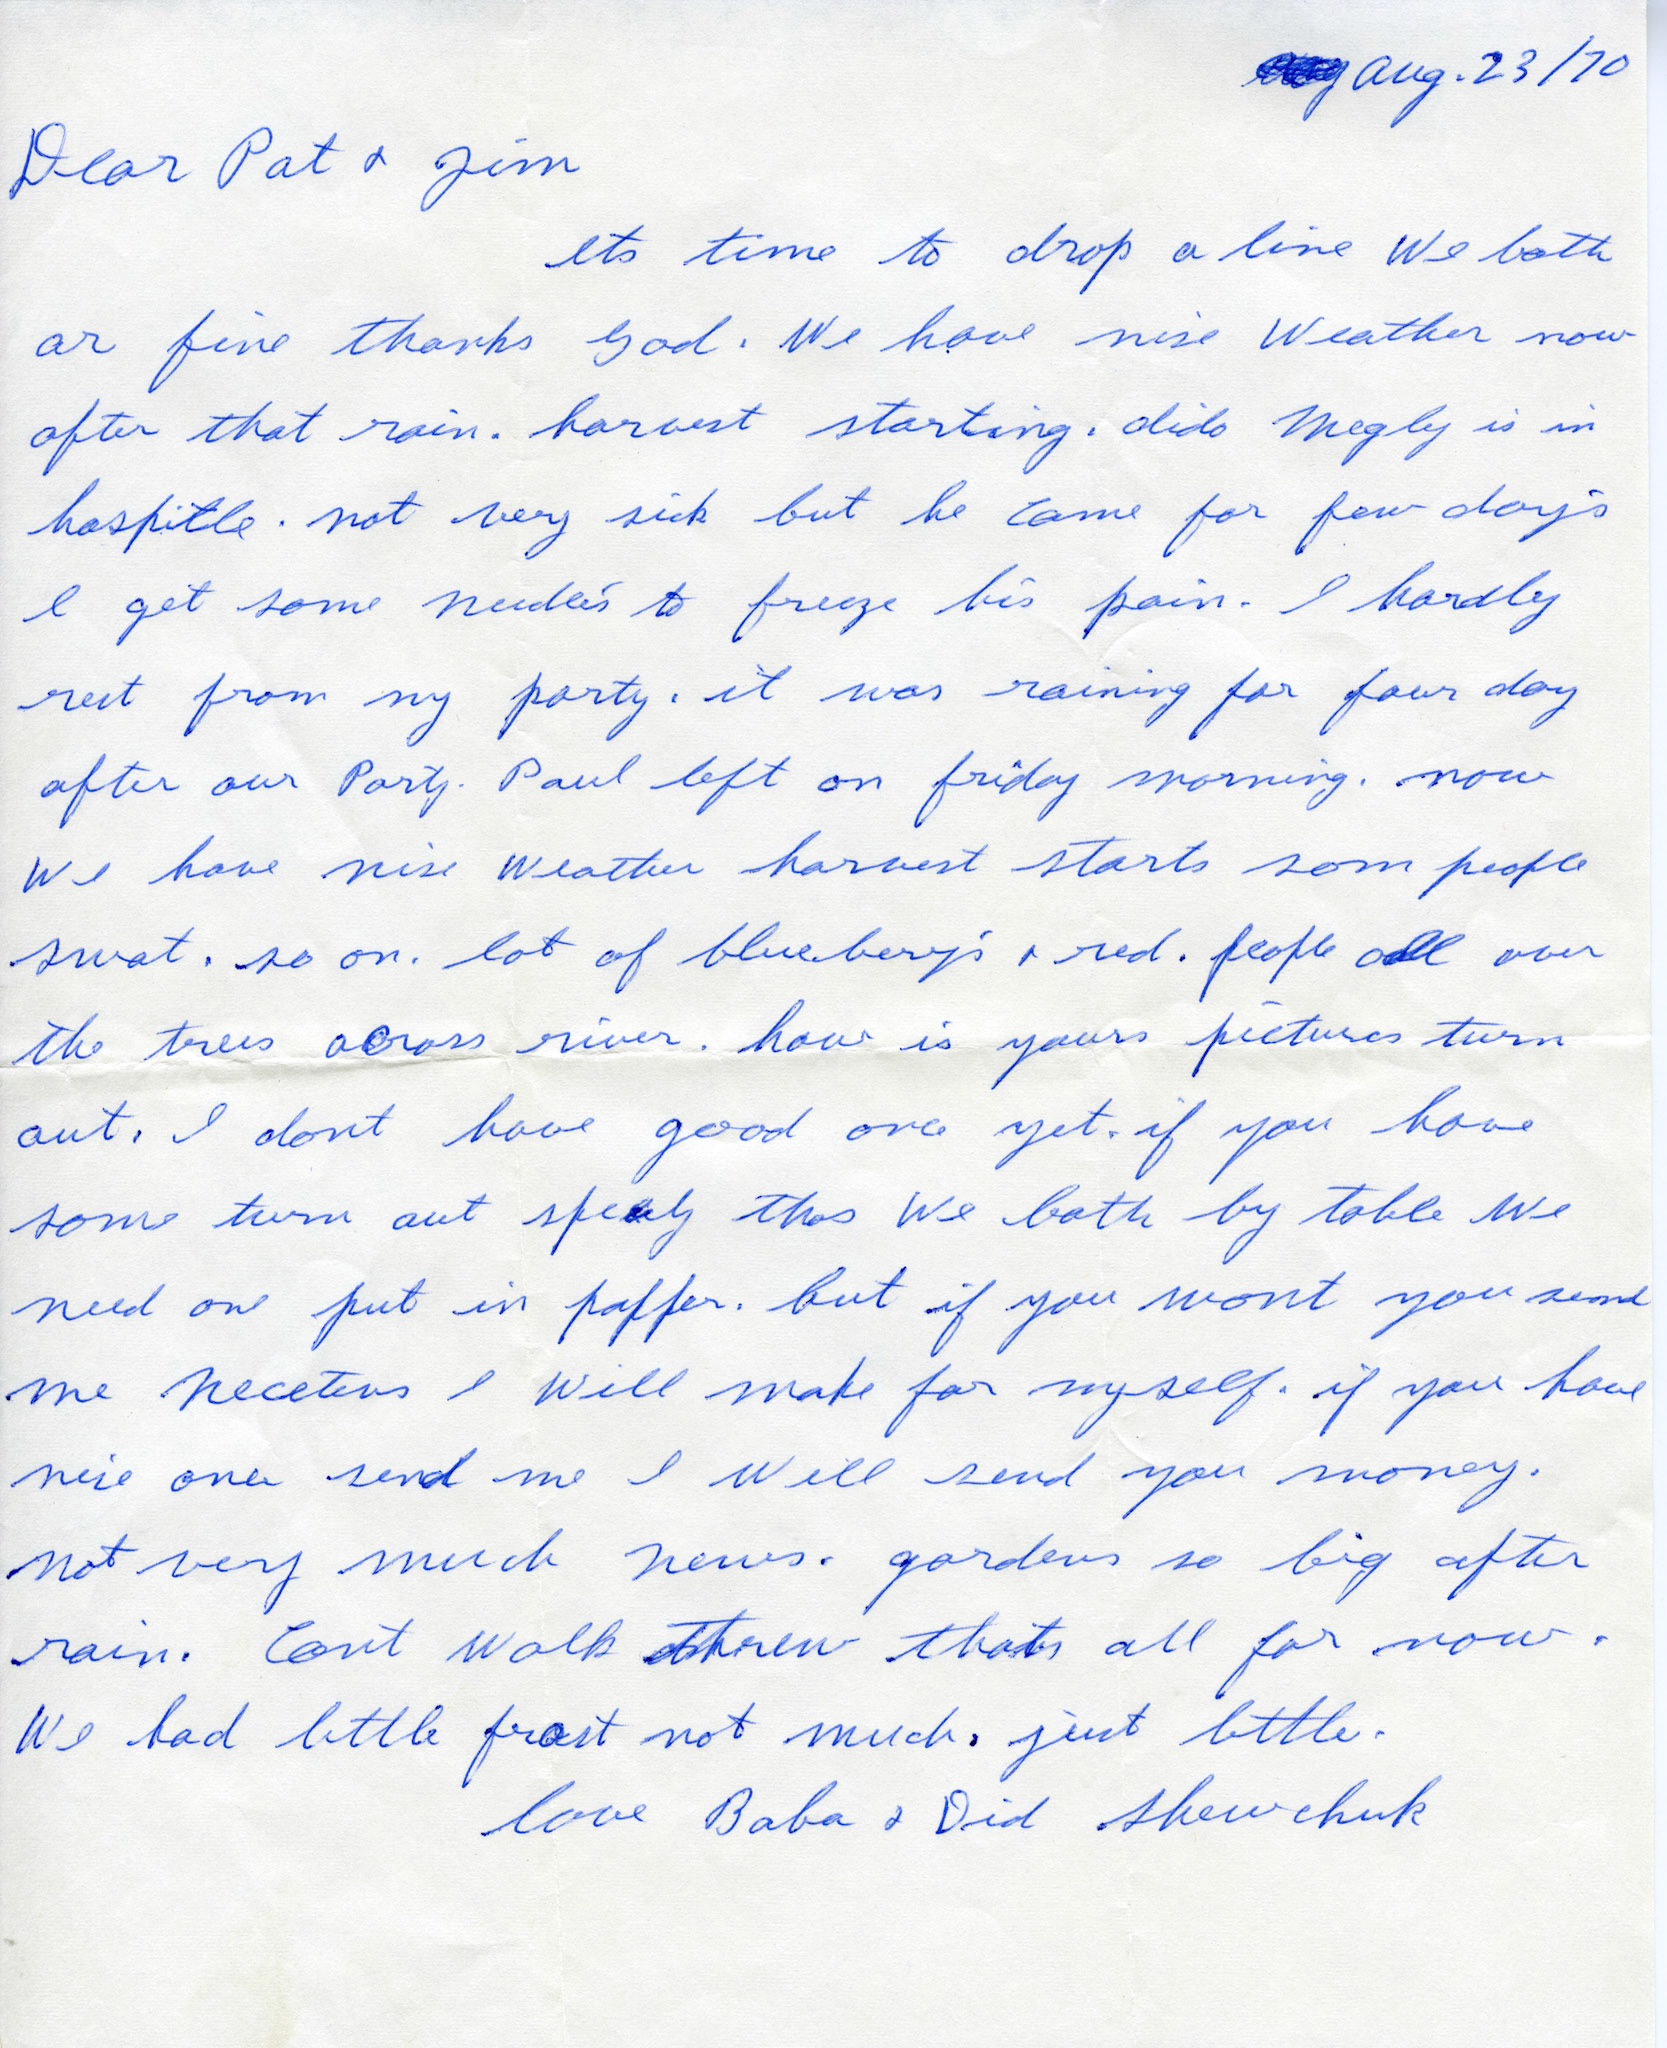 Aug. 23/70
Dear Pat & Jim
Its time to drop a line We both
ar fine thanks God. We have nise Weather now
after that rain. harvest starting. dido Megly is in
haspitle. not very sick but he came for few day's
I get some needle's to freeze his pain. I hardly
rest from my party. it was raining for four day
after our Party. Paul left on friday morning. now
We have nise Weather harvest starts som people
swat. so on. lot of blueberry's & red. people all over
the trees across river. how is yours pictures turn
out. I dont have good one yet. if you have
some turn out thos We both by table We
need one put in paffer. but if you wont you send
me necetevs I Will make for myself. if you have
nise one send me I Will send you money.
not very much news. gardens so big after
rain. Can't Walk threw thats all for now.
We had little frost not much. just little.
love Baba & Did Shewchuk